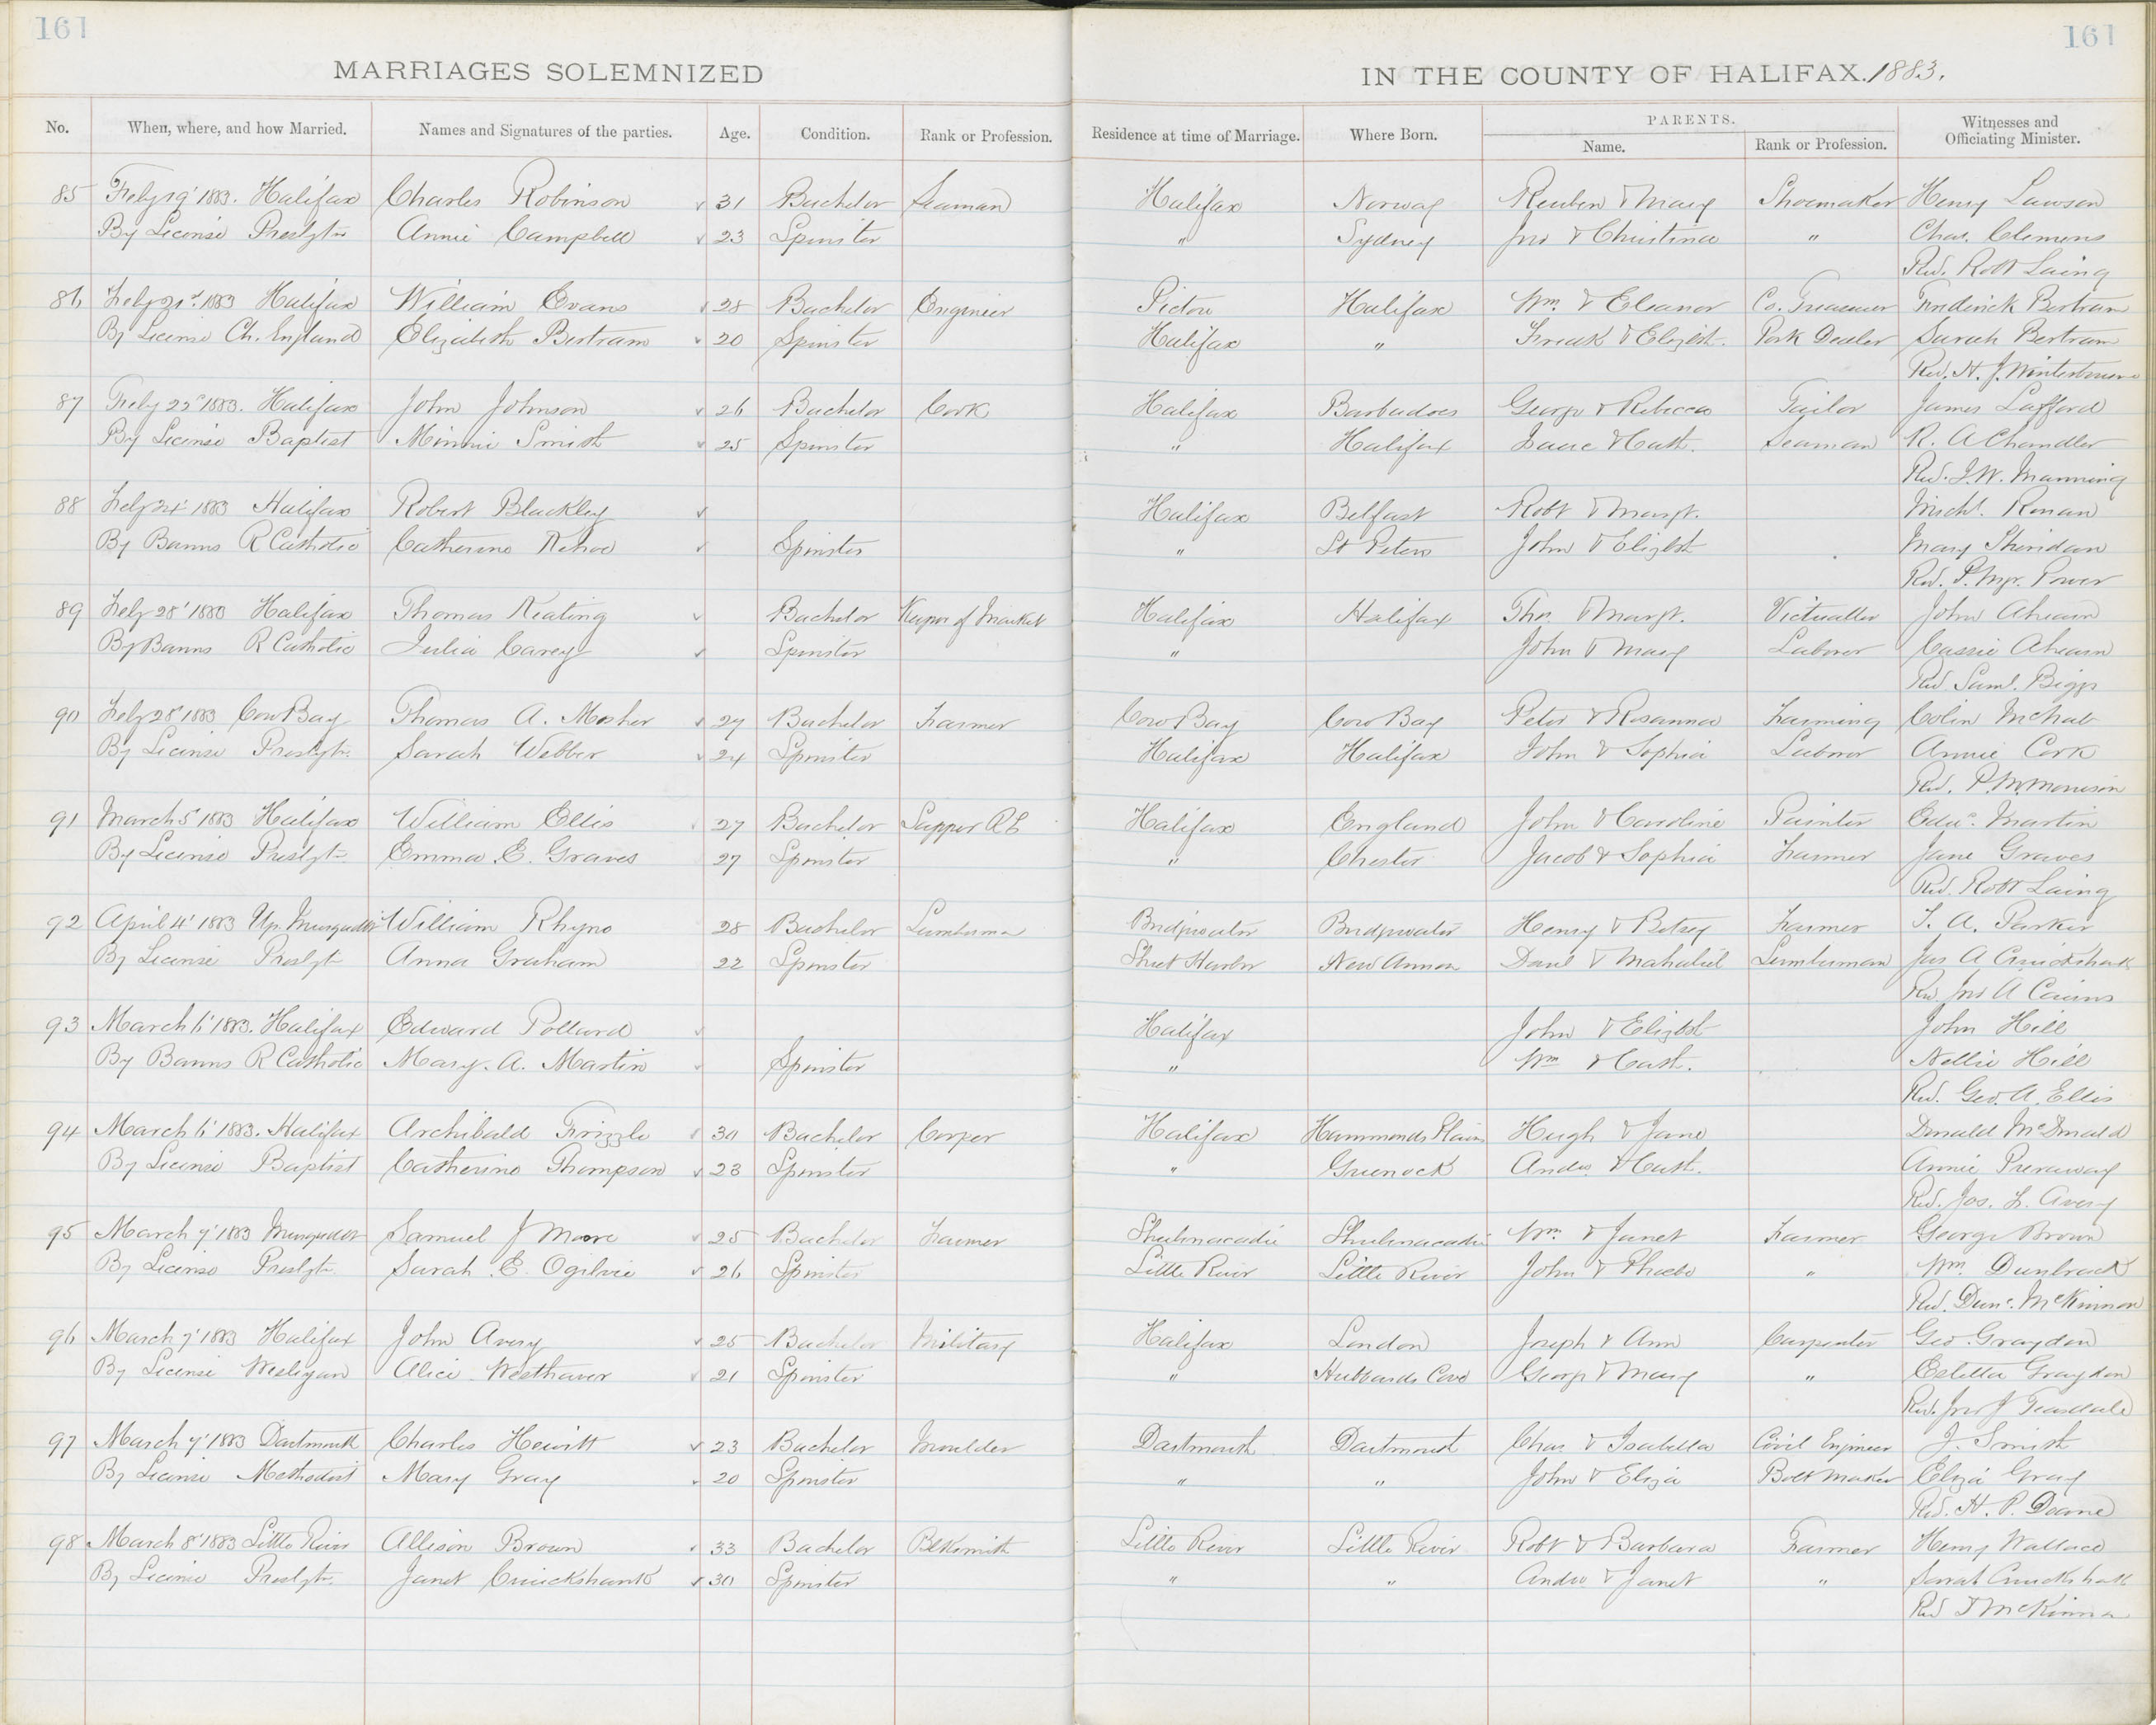 161
161
MARRIAGES SOLEMNIZED IN THE COUNTY OF HALIFAX. 1883.
No. When, where, and how Married. Names and Signatures of the parties. Age. Condition. Rank or Profession. Residence at time of Marriage. Where Born. PARENTS. Name. Rank or Profession. Witnesses and Officiating Minister.
85 Feby 19' 1883. Halifax Charles Robinson 31 Bachelor Seaman Halifax Norway Reuben & Mary Shoemaker Henry Lawson
By License Presbytn Annie Campbell 23 Spinster " Sydney Jno & Christina " Chas. Clemens
Rev. Robt Laing
86 Feby 21st 1883 Halifax William Evans 28 Bachelor Engineer Pictou Halifax Wm. & Eleanor Co. Treasurer Frederick Bertram
By License Ch. England Elizabeth Bertram 20 Spinster Halifax " Fredk & Elizbt. Pork Dealer Sarah Bertram
Rev. H. J. Winterbourne
87 Feby 22d 1883. Halifax John Johnson 26 Bachelor Cook Halifax Barbadoes George & Rebecca Tailor James Lafford
By License Baptist Minnie Smith 25 Spinster " Halifax Isaac & Cath. Seaman R. A Chandler
Rev. J. W. Manning
88 Feby 24' 1883 Halifax Robert Blackley Halifax Belfast Robt & Margt. Michl. Ronan
By Banns R Catholic Catherine Kehoe Spinster " St Peters John & Elizbt Mary Sheridan
Rev. P. Power
89 Feby 28' 1883 Halifax Thomas Keating Bachelor Keeper of Market Halifax Halifax Thos. & Margt. Victualler John Ahearn
By Banns R Catholic Julia Carey Spinster " John & Mary Laborer Cassie Ahearn
Rev. Saml. Biggs
90 Feby 28' 1883 Cow Bay Thomas A. Mosher 27 Bachelor Farmer Cow Bay Cow Bay Peter & Rosanna Farming Colin McNab
By License Presbytn. Sarah Webber 24 Spinster Halifax Halifax John & Sophia Laborer Annie Cork
Rev. P. M. Morrison
91 March 5' 1883 Halifax William Ellis 27 Bachelor Sapper RE Halifax England John & Caroline Painter Edwd. Martin
By License Presbytn Emma E. Graves 27 Spinster " Chester Jacob & Sophia Farmer Jane Graves
Rev. Robt Laing
92 April 4' 1883 Up. Musquodbt William Rhyno 28 Bachelor Lumberman Bridgewater Bridgewater Henry & Betsey Farmer T. A. Parker
By License Presbyt Anna Graham 22 Spinster Sheet Harbor New Annan Danl & Mahaliel Lumberman Jas A Cruickshank
Rev. Jno A Cairns
93 March 6' 1883. Halifax Edward Pollard Halifax John & Elizbt John Hill
By Banns R Catholic Mary. A. Martin Spinster " Wm & Cath. Nellie Hill
Rev. Geo. A. Ellis
94 March 6' 1883. Halifax Archibald Frizzle 30 Bachelor Cooper Halifax Hammonds Plains Hugh & Jane Donald McDonald
By License Baptist Catherine Thompson 23 Spinster " Greenock Andw & Cath. Annie
Rev. Jos. F. Avery
95 March 7' 1883 Musquodbt Samuel J Moore 25 Bachelor Farmer Shubnacadie Shubnacadie Wm. & Janet Farmer George Brown
By License Presbytn Sarah E. Ogilvie 26 Spinster Little River Little River John & Phoebe " Wm. Dunbrack
Rev. Dunc. McKinnon
96 March 7' 1883 Halifax John Avery 25 Bachelor Military Halifax London Joseph & Ann Carpenter Geo. Graydon
By License Wesleyan Alice Westhaver 21 Spinster " Hubbards Cove George & Mary " Estella Graydon
Rev. Jno J Teasdale
97 March 7' 1883 Dartmouth Charles Hewitt 23 Bachelor Moulder Dartmouth Dartmouth Chas & Isabella Civil Engineer J. Smith
By License Methodist Mary Gray 20 Spinster " " John & Eliza Bolt Maker Eliza Gray
Rev. H. P. Doane
98 March 8' 1883 Little River Allison Brown 33 Bachelor Blksmith Little River Little River Robt & Barbara Farmer Henry Wallace
By License Presbytn. Janet Cruickshank 30 Spinster " " Andw & Janet " Sarah Cruickshank
Rev D McKinnon